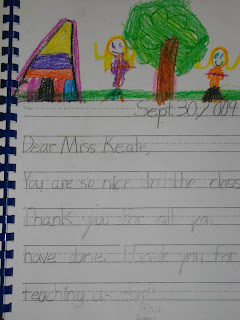 Sept. 30, 2009
Dear Miss Keate,
You are so nice to the class
Thank you for all you
have done. Thank you for
teaching us